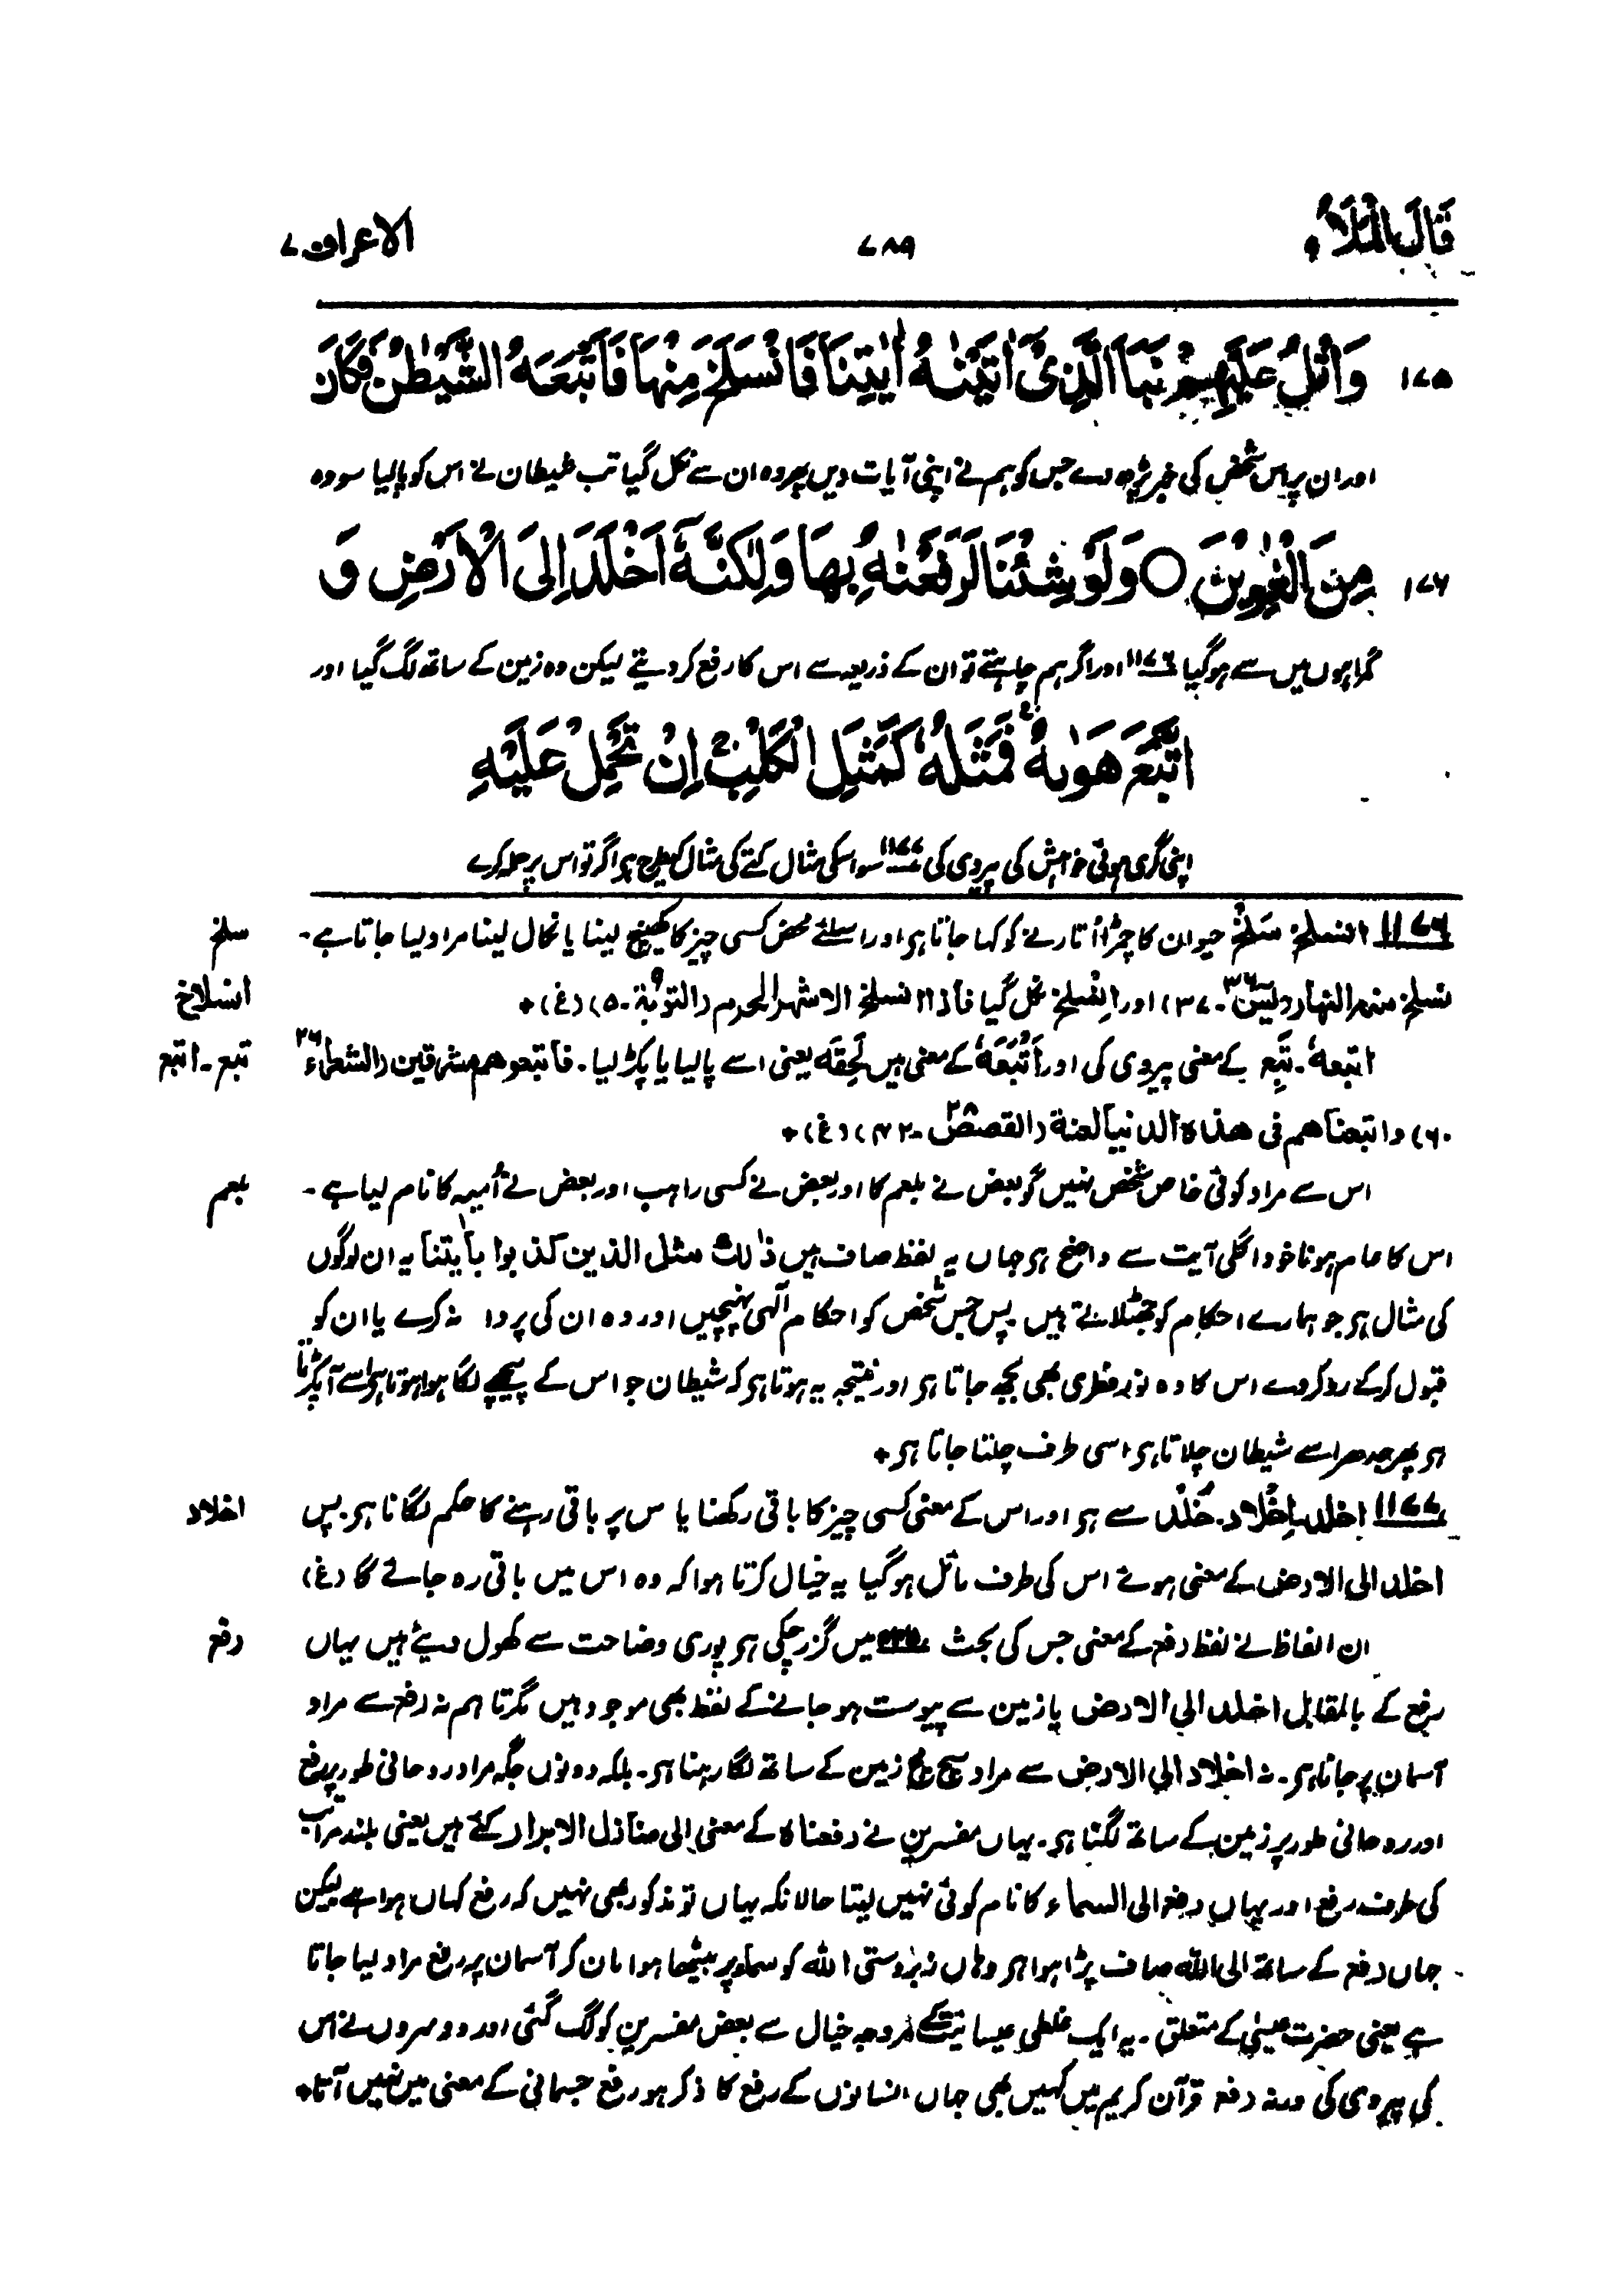 قَالَ الْمَلَاُ ٩
٧٨٩
الاعراف ٧
١٧٥ وَاتْلُ عَلَيْهِمْ نَبَاَ الَّذِيْٓ اٰتَيْنٰهُ اٰيٰتِنَا فَانْسَلَخَ مِنْهَا فَاَتْبَعَهُ الشَّيْطٰنُ فَكَانَ
اور ان پر اس شخص کی خبر پڑھ دے جس کو ہم نے اپنی آیات دیں پھر وہ ان سے نکل گیا تب شیطان نے اس کو پا لیا سو وہ
١٧٦ مِنَ الْغٰوِيْنَ ○ وَلَوْ شِئْنَا لَرَفَعْنٰهُ بِهَا وَلٰكِنَّهٗٓ اَخْلَدَ اِلَى الْاَرْضِ وَ
گمراہوں میں سے ہو گیا ١١٧٦ اور اگر ہم چاہتے تو ان کے ذریعہ سے اس کا رفع کر دیتے لیکن وہ زمین کے ساتھ لگ گیا اور
اتَّبَعَ هَوٰىهُ ۚ فَمَثَلُهٗ كَمَثَلِ الْكَلْبِ ۚ اِنْ تَحْمِلْ عَلَيْهِ
اپنی گری ہوئی خواہش کی پیروی کی ١١٧٧ سو اسکی مثال کتے کی مثال کیطرح ہے اگر تو اس پر حملہ کرے
١١٧٦ انسلخ۔ سَلْخ حیوان کا چمڑا اُتارنے کو کہا جاتا ہے اور اسلئے محض کسی چیز کا کھینچ لینا یا نکال لینا مراد لیا جاتا ہے۔
سلخ
نسلخ منه النهار (یٰسٓ ٣٦۔ ٣٧) اور اِنْسلخ نکل گیا فاذا انسلخ الاشهر الحرم (التوبة ٩۔ ٥) (غ) +
انسلاخ
اتبعهٗ۔ تَبِع کے معنی پیروی کی اور اَتْبَعَهٗ کے معنی ہیں لَحِقَه یعنی اسے پا لیا یا پکڑ لیا۔ فاتبعوهم مشرقین (الشعراء ٢٦
تبع۔ اتبع
٦٠) واتبعناهم فی هذہ الدنیا لعنة (القصص ٢٨۔ ٤٢) (غ) +
اس سے مراد کوئی خاص شخص نہیں گو بعض نے بلعم کا اور بعض نے کسی راہب اور بعض نے اُمیہ کا نام لیا ہے۔
بلعم
اس کا عام ہونا خود اگلی آیت سے واضح ہے جہاں یہ لفظ صاف ہیں ذٰلك مثل الذین کذبوا باٰیتنا یہ ان لوگوں
کی مثال ہے جو ہمارے احکام کو جھٹلاتے ہیں پس جس شخص کو احکام الٰہی پہنچیں اور وہ ان کی پروا نہ کرے یا ان کو
قبول کرکے رد کردے اس کا وہ نور فطری بھی بجھ جاتا ہے اور نتیجہ یہ ہوتا ہے کہ شیطان جو اس کے پیچھے لگا ہوا ہوتا ہے اسے آ پکڑتا
ہے پھر جدھر اسے شیطان چلاتا ہے اسی طرف چلتا جاتا ہے +
١١٧٧ اخلد۔ اِخْلاد۔ خُلْد سے ہے اور اس کے معنی کسی چیز کا باقی رکھنا یا س پر باقی رہنے کا حکم لگانا ہے۔ پس
اخلاد
اخلد الی الارض کے معنی ہوئے اس کی طرف مائل ہو گیا یہ خیال کرتا ہوا کہ وہ اس میں باقی رہ جائے گا (غ)
ان الفاظ نے لفظ رفع کے معنی جس کی بحث میں گزر چکی ہے پوری وضاحت سے کھول دیئے ہیں یہاں
رفع
رفع کے بالمقابل اخلد الی الارض یا زمین سے پیوست ہو جانے کے لفظ بھی موجود ہیں مگر تاہم نہ رفع سے مراد
آسمان پر جانا ہے۔ نہ اخلاد الی الارض سے مراد سچ مچ زمین کے ساتھ لگا رہنا ہے۔ بلکہ دونوں جگہ مراد روحانی طور پر رفع
اور روحانی طور پر زمین کے ساتھ لگنا ہے۔ یہاں مفسرین نے رفعناہ کے معنی الی منازل الابرار کئے ہیں یعنی بلند مراتب
کی طرف رفع اور یہاں رفع الی السماء کا نام کوئی نہیں لیتا حالانکہ یہاں تو مذکور بھی نہیں کہ رفع کہاں ہوا ہے لیکن
جہاں رفع کے ساتھ الی اللہ صاف پڑا ہوا ہے وہاں زبردستی اللہ کو سماء پر بیٹھا ہوا مان کر آسمان پر رفع مراد لیا جاتا
ہے یعنی حضرت عیسیٰ کے متعلق۔ یہ ایک غلطی عیسائیت کے مروجہ خیال سے بعض مفسرین کو لگ گئی اور دوسروں نے اس
کی پیروی کی ورنہ رفع قرآن کریم میں کہیں بھی جہاں انسانوں کے رفع کا ذکر ہو رفع جسمانی کے معنی میں نہیں آتا +